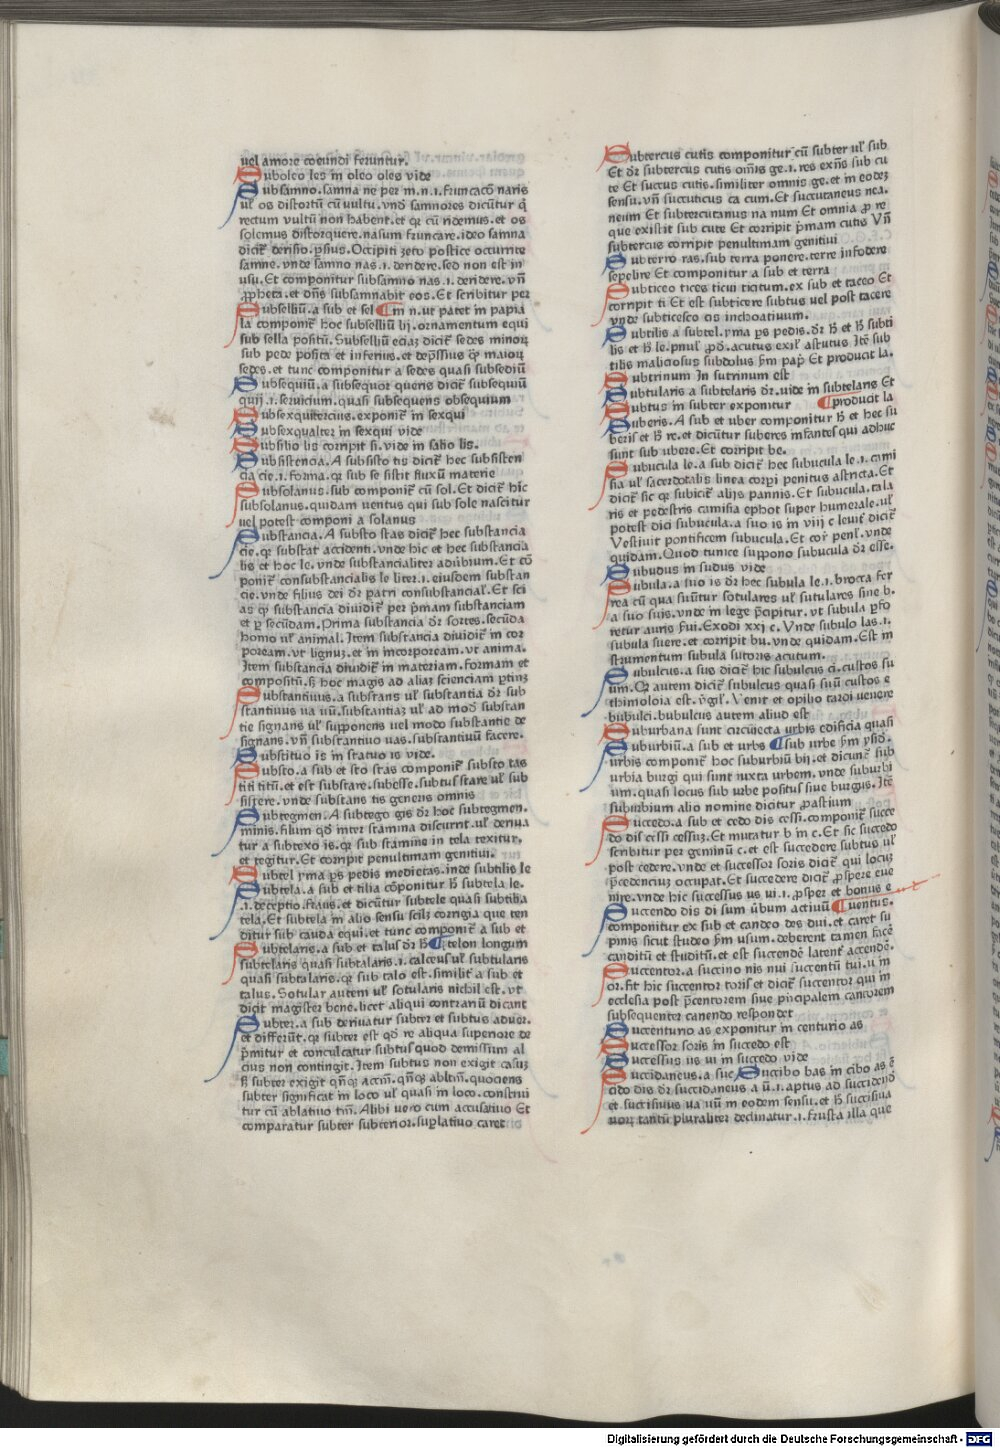 uel amore coeundi feruntur.
Suboleo les in oleo oles vide
Subsanno.sanna ne per m.n.i.fruncacō naris
ul' os distortū cū uultu.vnð sannores dicūtur q̄
rectum vultū non habent.et qr cū ridemus.et os
solemus distorquere.nasum fruncare.ideo sanna
dicit' derisio.ꝑsius.Occipiti zeco postice occurrite
sanne.vnde sanno nas.i.deridere.sed non est in
usu.Et componitur subsanno nas.i.deridere.vn̄
ꝓpheta.et dn̄s subsannabit eos.Et scribitur per
Subselliū.a sub et sel ¶in n.ut patet in papia
la componit' hoc subselliū lij.ornamentum equi
sub sella positū.Subselliū eciaꝫ dicit' sedes minor
sub pede posita et inferius.et dep̄ssius qꝫ maior
sedes.et tunc componitur a sedes quasi subsediū
Subsequiū.a subsequor queris dicit' subsequiū
quij.i.seruicium.quasi subsequens obsequium
Subsexquitercius.exponit' in sexqui
Subsexqualter in sexqui vide
Subsilio lis corripit si.vide in salio lis.
Subsistencia.A subsisto tis dicit' hec subsisten
cia cie.i.forma.qr sub se sistit fluxū materie
Subsolanus.sub componit' cū sol.Et dicit' hic
subsolanus.quidam uentus qui sub sole nascitur
uel potest componi a solanus
Substancia.A substo stas dicit' hec substancia
cie.qr substat accidenti.vnde hic et hec substancia
lis et hoc le.vnde substancialiter aduerbium.Et cō
ponit' consubstancialis le liter.i.eiusdem substan
cie.vnde filius dei dr patri consubstancial'.Et sci
as qr substancia diuidit' per p̄mam substanciam
et ꝑ secūdam.Prima substancia dr sortes.secūda
homo ul' animal.Item substancia diuidit' in cor
poream.vt lignuꝫ.et in incorpoream.vt anima.
Item substancia diuidit' in materiam.formam et
compositū.sꝫ hoc magis ad alias scienciam ꝑtinꝫ
Substantiuus.a substans ul' substantia dr sub
stantiuus ua uū.substantiaꝫ ul' ad mod' substan
tie signans ul' supponens uel modo substantie de
signans.vn̄ substantiuo uas.substantiuū facere.
Substituo is in statuo is vide.
Substo.a sub et sto stas componit' substo tas
titi titū.et est substare.subesse.subtus stare ul' sub
sistere.vnde substans tis generis omnis
Subtegmen.A subtego gis dr hoc subtegmen.
minis.filum qd' inter stamina discurrit.ul' deriua
tur a subtexo is.qr sub stamine in tela texitur.
et tegitur.Et corripit penultimam genitiui.
Subtel yma ꝑs pedis medietas.inde subtilis le
Subtela.a sub et tilia cōponitur hꝫ subtela le.
.i.deceptio.fraus.et dicūtur subtele quasi subtilia
tela.Et subtela in alio sensu scilꝫ corrigia que ten
ditur sub cauda equi.et tunc componit' a sub et
Subtelaris.a sub et talus dr hꝫ ¶telon longum
subtelaris quasi subtalaris.i.calceus ul' subtularis
quasi subtalaris.qr sub talo est.similit' a sub et
talus.Sotular autem ul' sotularis nichil est.vt
dicit magister bene.licet aliqui contrariū dicant
Subter.a sub deriuatur subter et subtus aduer.
et differūt.qr subter est qd' re aliqua superiore de
p̄mitur et conculcatur subtus quod demissum al
cius non contingit.Item subtus non exigit casuꝫ
sꝫ subter exigit qn̄qꝫ accm̄.qn̄qꝫ abltm̄.quociens
subter significat in loco ul' quasi in loco.construi
tur cū ablatiuo tm̄.Alibi uero cum accusatiuo Et
comparatur subter subterior.suplatiuo caret
Subtercus cutis componitur cū subter ul' sub
Et dr subtercus cutis om̄is ge.i.res exn̄s sub cu
te Et succus cutis.similiter omnis ge.et in eodeꝫ
sensu.vn̄ succuticus ca cum.Et succutaneus nea.
neum Et subtercutanus na num Et omnia ꝓ re
que existit sub cute Et corripit p̄mam cutis Vn̄
subtercus corripit penultimam genitiui
Subterro ras.sub terra ponere.terre infodere
sepelire Et componitur a sub et terra
Subticeo tices ticui ticitum.ex sub et taceo Et
corripit ti Et est subticere subtus uel post tacere
vnde subticesco cis inchoatiuum.
Subtilis a subtel.yma ꝑs pedis.dr hꝫ et hꝫ subti
lis et hꝫ le.pnul' ꝓd'.acutus exil' astutus Itē sub
tilis maliciosus subdolus sm̄ pap̄ Et producit la.
Subtrinum In sutrinum est
Subtularis a subtelaris dr.uide in subtelaris Et
Subtus in subter exponitur ¶producit la
Suberis.A sub et uber componitur hꝫ et hec su
beris et hꝫ re.et dicūtur suberes infantes qui adhuc
sunt sub ubere.Et corripit be.
Subucula le.a sub dicit' hec subucula le.i.cami
sia ul' sacerdotalis linea corpi penitus astricta.Et
dicit' sic qr subicit' alijs pannis.Et subucula.tala
ris et pedestris camisia ephot super humerale.ul'
potest dici subucula.a suo is in viij c leuit' dicit'
Vestiuit pontificem subucula.Et cor' penl'.vnde
quidam.Quod tunice suppono subucula dr esse.
Subudus in sudus vide
Subula.a suo is dr hec subula le.i.brocca fer
rea cū qua suūtur sotulares ul' sutulares sine b.
a suo suis.vnde in lege p̄cipitur.vt subula ꝑfo
retur auris s̄ui.Exodi xxj c.Vnde subulo las.i.
subula suere.et corripit bu.vnde quidam.Est in
strumentum subula sutoris acutum.
Subulcus.a sus dicit' hic subulcus ci.custos su
um.Qr autem dicit' subulcus quasi suū custos e
thimoloia est.v̄gil'.Venit et opilio tardi uenere
bubulci.bubulcus autem aliud est
Suburbana sunt circūiecta urbis edificia quasi
Suburbiū.a sub et urbs ¶sub urbe sm̄ ysid'.
urbis componit' hoc suburbiū bij.et dicunt' sub
urbia burgi qui sunt iuxta urbem.vnde suburbi
um.quasi locus sub urbe positus siue burgus.Itē
suburbium alio nomine dicitur ꝓastium
Succedo.a sub et cedo dis cessi.componit' succe
do dis cessi cessuꝫ.Et mutatur b in c.Et sic succedo
scribitur per geminū c.et est succedere subtus ul'
post cedere.vnde et successor soris dicit' qui locuꝫ
p̄cedenciuꝫ occupat.Et succedere dicit' ꝓspere eue
nire.vnde hic successus us ui.i.ꝓsper et bonus e
Succendo dis di sum ūbum actiuū ¶uentus.
componitur ex sub et candeo des dui.et caret su
pinis sicut studeo sm̄ usum.deberent tamen facē
canditū et studitū.et est succendē latent' accendē.
Succentor.a succino nis nui succentū tui.u in
or.fit hic succentor toris et dicit' succentor qui in
ecclesia post p̄centorem siue p̄ncipalem cantorem
subsequenter canendo respondet
Succenturio as exponitur in centurio as
Successor soris in succedo est
Successus us ui in succedo vide
Succidaneus.a suc Succibo bas in cibo as ē
cido dis dr succidaneus a ū.i.aptus ad succidend'
et succisiuus ua uū in eodem sensu.et hꝫ succisiua
uorꝫ tantū pluraliter declinatur.i.frusta illa que
Digitalisierung gefördert durch die Deutsche Forschungsgemeinschaft - DFG